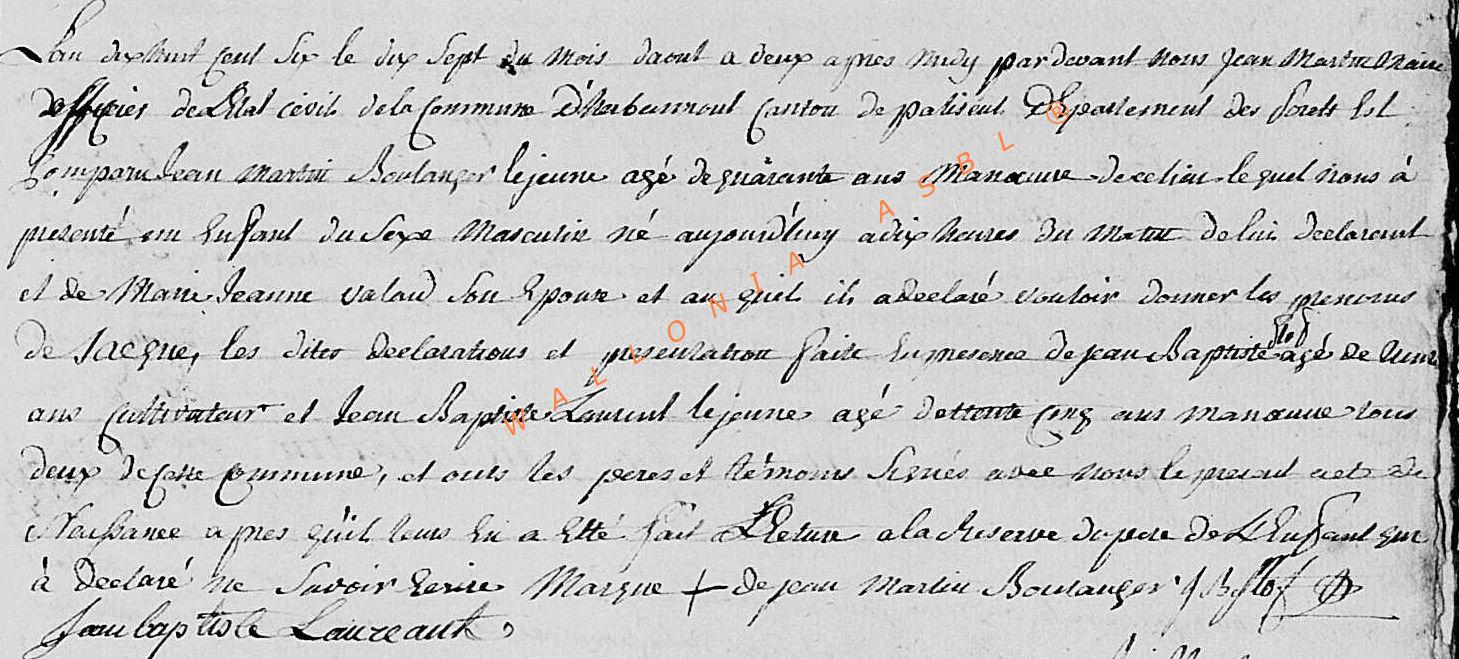 Lan dix huit cent six le dix sept du mois daout a deux apres midy par devant nous Jean Martin Maire
officier de L'Etat civil de la Commune D'Herbeumont Canton de paliseul Département des forets Est
Comparu Jean Martin Boulanger le jeune agé de quarante ans Manœuvre de ce lieu lequel nous à
présenté un Enfant du Sexe Masculin né aujourd'huy a dix heures du Matin de lui declarant
et de Marie Jeanne valaud Son Epouse et au quel il a declaré vouloir donner les prenoms
de Jacque, les dites declarations et presentation faite En presence de Jean Baptiste agé de
ans Cultivateur et Jean Baptiste Laurent le jeune agé de trente cinq ans manœuvre tous
deux de Cette Commune, et onts les peres et témoins Signés avec nous le present acte de
Naissance apres qu'il leurs En a Etté fait Lecture a la Reserve du pere de L'Enfant qui
à declaré ne Savoir Ecrire Marque + de Jean Martin Boulanger J B
Jean baptiste Laureant
WALLONIA ASBL ©